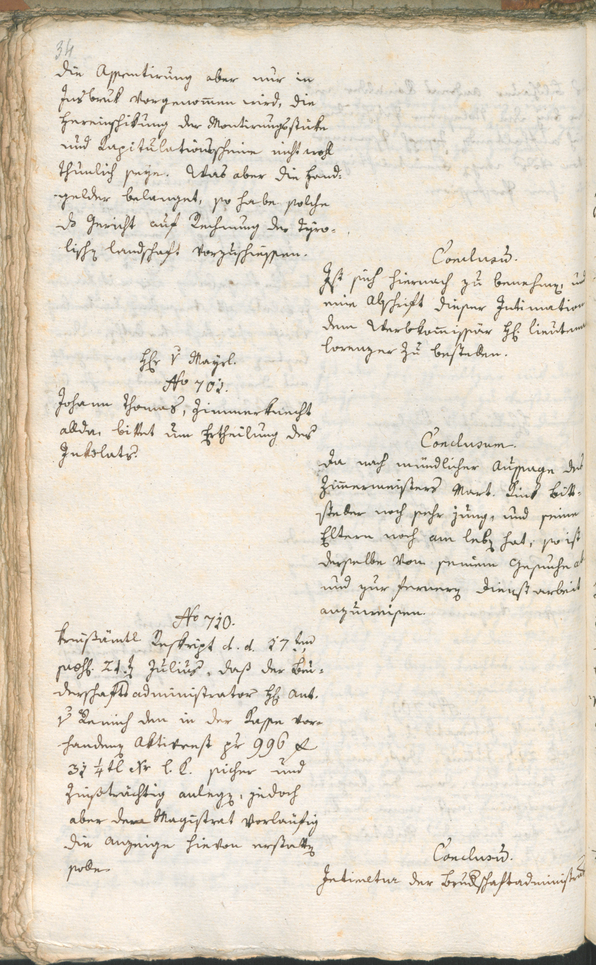 34
die Assentirung aber nur in
Insbruk vorgenommen wird, die
Hereinschikung der Montirungsstüke
und Kapitulationscheine nicht wohl
thunlich seye. Was aber die Hand-
gelder belanget, so habe solche
das Gericht auf Rechnung der Tyro-
lischen Landschaft vorzuschiessen.
Conclusum.
Ist sich hiernach zu benehmen, und
eine Abschrift dieser Intimation
dem Werbkommissär HH. Lieutenant
Lorenzer zu bestellen.
HH. v Mayrl.
No 701.
Johann Thomas, Zimmerknecht
allda, bittet um Ertheilung des
Inkolats.
Conclusum.
Da nach mündlicher Aussage des
Zimmermeisters Mart. Bitt-
steller noch sehr jung, und seine
Eltern noch am leben hat; so ist
derselbe von seinem Gesuche ab
und zur fernern Dienstarbeit
anzuweisen.
No 710.
Kreisämtl Reskript d. d. 17ten
21ten Julius, daß der Bru-
derschaftadministrator HH. Ant.
v Remich den in der Kasse vor-
handenen Aktivrest pr 996 f
31 1/4tl Xr sicher und
Zinsträchtig anlegen, jedoch
aber dem Magistrat vorläufig
die Anzeige hievon erstatten
solle.
Conclusum.
Intimetur der Brudschaftadministration